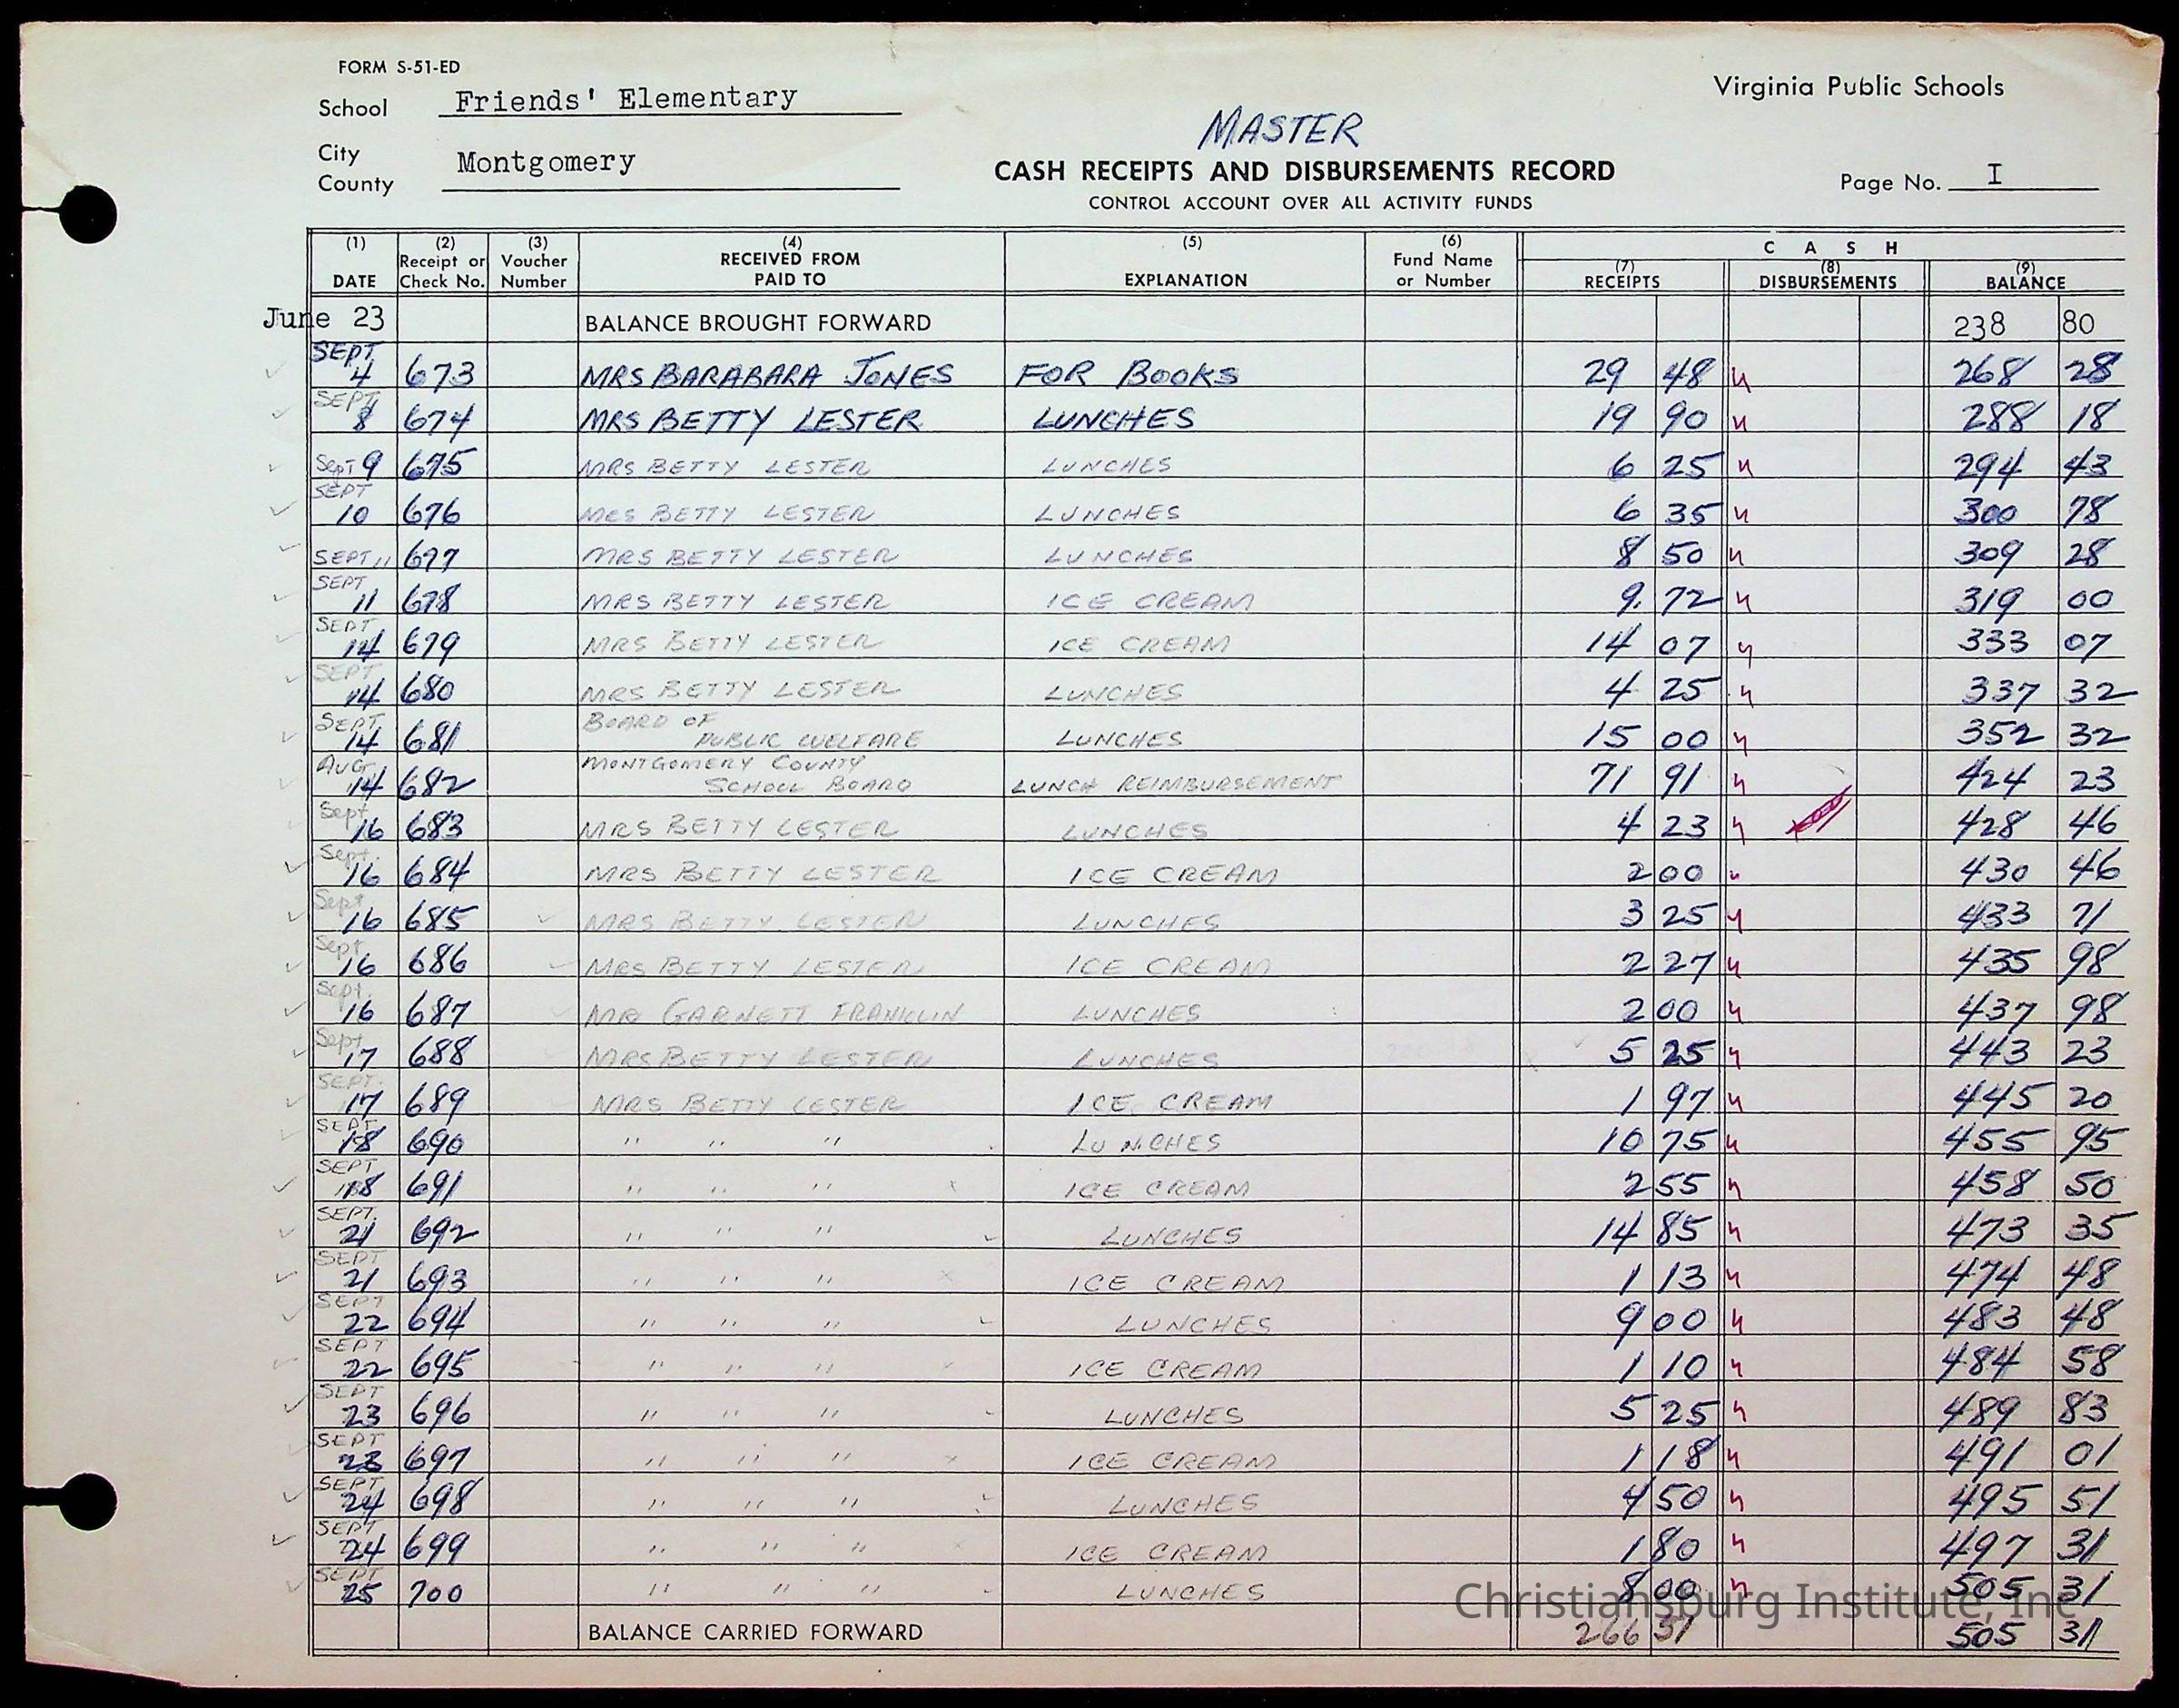 FORM S-51-ED
Virginia Public Schools
School Friends' Elementary
MASTER
City
County Montgomery
CASH RECEIPTS AND DISBURSEMENTS RECORD
Page No. I
CONTROL ACCOUNT OVER ALL ACTIVITY FUNDS
(1) (2) (3) (4) (5) (6) C A S H
DATE Receipt or Check No. Voucher Number RECEIVED FROM PAID TO EXPLANATION Fund Name or Number (7) RECEIPTS (8) DISBURSEMENTS (9) BALANCE
June 23 BALANCE BROUGHT FORWARD 238 80
SEPT 4 673 MRS BARABARA JONES FOR BOOKS 29 48 268 28
SEPT 8 674 MRS BETTY LESTER LUNCHES 19 90 288 18
SepT 9 675 MRS BETTY LESTER LUNCHES 6 25 294 43
SEPT 10 676 MRS BETTY LESTER LUNCHES 6 35 300 78
SEPT 11 677 MRS BETTY LESTER LUNCHES 8 50 309 28
SEPT 11 678 MRS BETTY LESTER ICE CREAM 9. 72 319 00
SEPT 14 679 MRS BETTY LESTER ICE CREAM 14 07 333 07
SEPT 14 680 MRS BETTY LESTER LUNCHES 4 25 337 32
SEPT. 14 681 BOARD OF PUBLIC WELFARE LUNCHES 15 00 352 32
AUG 14 682 MONTGOMERY COUNTY SCHOOL BOARD LUNCH REIMBURSEMENT 71 91 424 23
Sept 16 683 MRS BETTY LESTER LUNCHES 4 23 428 46
Sept. 16 684 MRS BETTY LESTER ICE CREAM 2 00 430 46
Sept 16 685 MRS BETTY LESTER LUNCHES 3 25 433 71
Sept. 16 686 MRS BETTY LESTER ICE CREAM 2 27 435 98
Sept. 16 687 MR GARNETT FRANKLIN LUNCHES 2 00 437 98
Sept 17 688 MRS BETTY LESTER LUNCHES 5 25 443 23
SEPT. 17 689 MRS BETTY LESTER ICE CREAM 1 97 445 20
SEPT 18 690 " " " LUNCHES 10 75 455 95
SEPT 18 691 " " " ICE CREAM 2 55 458 50
SEPT. 21 692 " " " LUNCHES 14 85 473 35
SEPT 21 693 " " " ICE CREAM 1 13 474 48
SEPT 22 694 " " " LUNCHES 9 00 483 48
SEPT 22 695 " " " ICE CREAM 1 10 484 58
SEPT 23 696 " " " LUNCHES 5 25 489 83
SEPT 23 697 " " " ICE CREAM 1 18 491 01
SEPT 24 698 " " " LUNCHES 4 50 495 51
SEPT 24 699 " " " ICE CREAM 1 80 497 31
SEPT 25 700 " " " LUNCHES 8 00 505 31
Christiansburg Institute, Inc
BALANCE CARRIED FORWARD 266 51 505 31